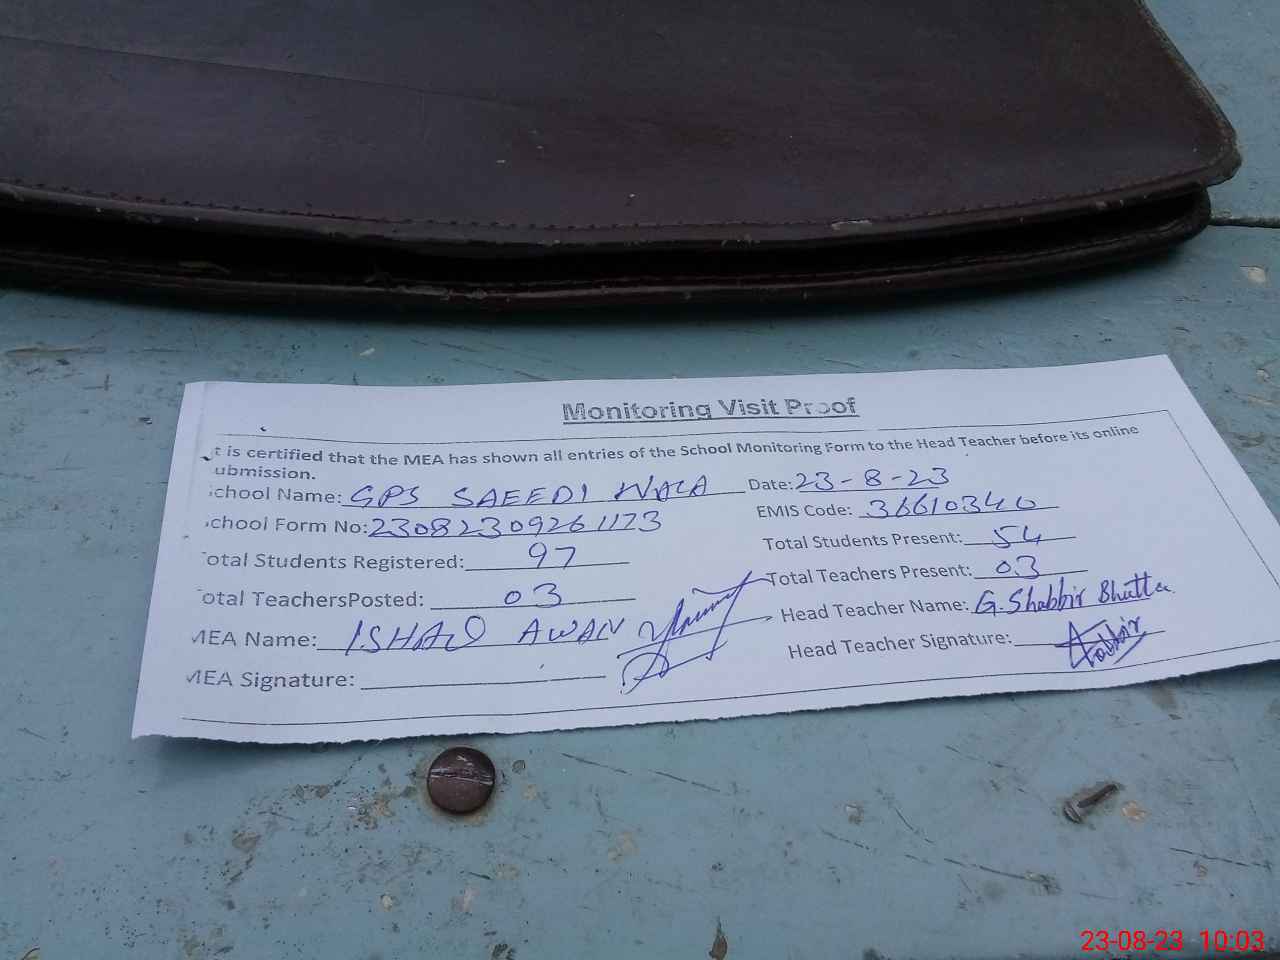 Monitoring Visit Proof
t is certified that the MEA has shown all entries of the School Monitoring Form to the Head Teacher before its online
ubmission.
chool Name: GPS SAEEDI WALA Date: 23-8-23
chool Form No: 23082309261173 EMIS Code: 36610340
otal Students Registered: 97 Total Students Present: 54
otal TeachersPosted: 03 Total Teachers Present: 03
MEA Name: ISHAQ AWAN Head Teacher Name: G. Shabbir Bhutta
MEA Signature: Head Teacher Signature:
23-08-23 10:03